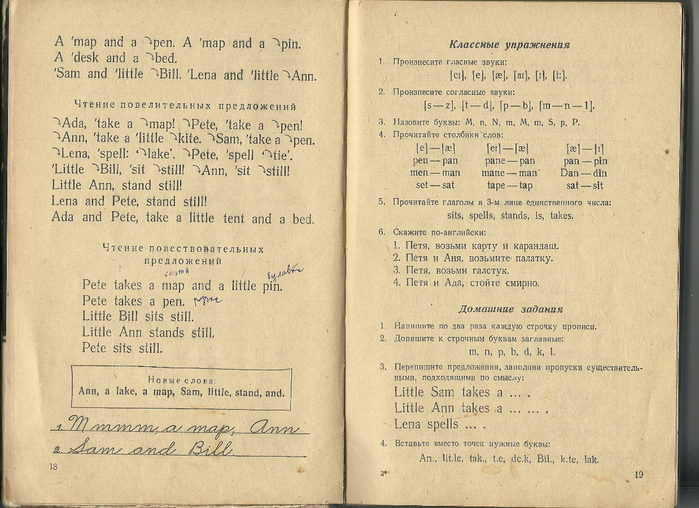 A ˈmap and a ↷pen. A ˈmap and a ↷pin.
A ˈdesk and a ↷bed.
ˈSam and ˈlittle ↷Bill. ˈLena and ˈlittle ↷Ann.
Чтение повелительных предложений
↷Ada, ˈtake a ↷map! ↷Pete, ˈtake a ↷pen!
↷Ann, ˈtake a ˈlittle ↷kite. ↷Sam, ˈtake a ↷pen.
↷Lena, ˈspell: ‘↷lake’. ↷Pete, ˈspell ‘↷tie’.
ˈLittle ↷Bill, ˈsit ↷still! ↷Ann, ˈsit ↷still!
Little Ann, stand still!
Lena and Pete, stand still!
Ada and Pete, take a little tent and a bed.
Чтение повествовательных
предложений
булавка
Pete takes a map and a little pin.
Pete takes a pen.
Little Bill sits still.
Little Ann stands still.
Pete sits still.
Новые слова
Ann, a lake, a map, Sam, little, stand, and.
1. Mmmm, a map, Ann
2. Sam and Bill
18
Классные упражнения
1. Произнесите гласные звуки:
[eı], [e], [æ], [aı], [ı], [i:].
2. Произнесите согласные звуки:
[s—z], [t—d], [p—b], [m—n—l].
3. Назовите буквы: M, n, N, m, M, m, S, p, P.
4. Прочитайте столбики слов:
[e]—[æ] [eı]—[æ] [æ]—[ı]
pen—pan pane—pan pan—pin
men—man mane—man Dan—din
set—sat tape—tap sat—sit
5. Прочитайте глаголы в 3-м лице единственного числа:
sits, spells, stands, is, takes.
6. Скажите по-английски:
1. Петя, возьми карту и карандаш.
2. Петя и Аня, возьмите палатку.
3. Петя, возьми галстук.
4. Петя и Ада, стойте смирно.
Домашние задания
1. Напишите по два раза каждую строчку прописи.
2. Допишите к строчным буквам заглавные:
m, n, p, b, d, k, l.
3. Перепишите предложения, заполнив пропуски существитель-
ными, подходящими по смыслу:
Little Sam takes a ... .
Little Ann takes a ... ... .
Lena spells ... .
4. Вставьте вместо точек нужные буквы:
An., lit.le, tak., t.e, de.k, Bil., k.te, lak.
2*
19